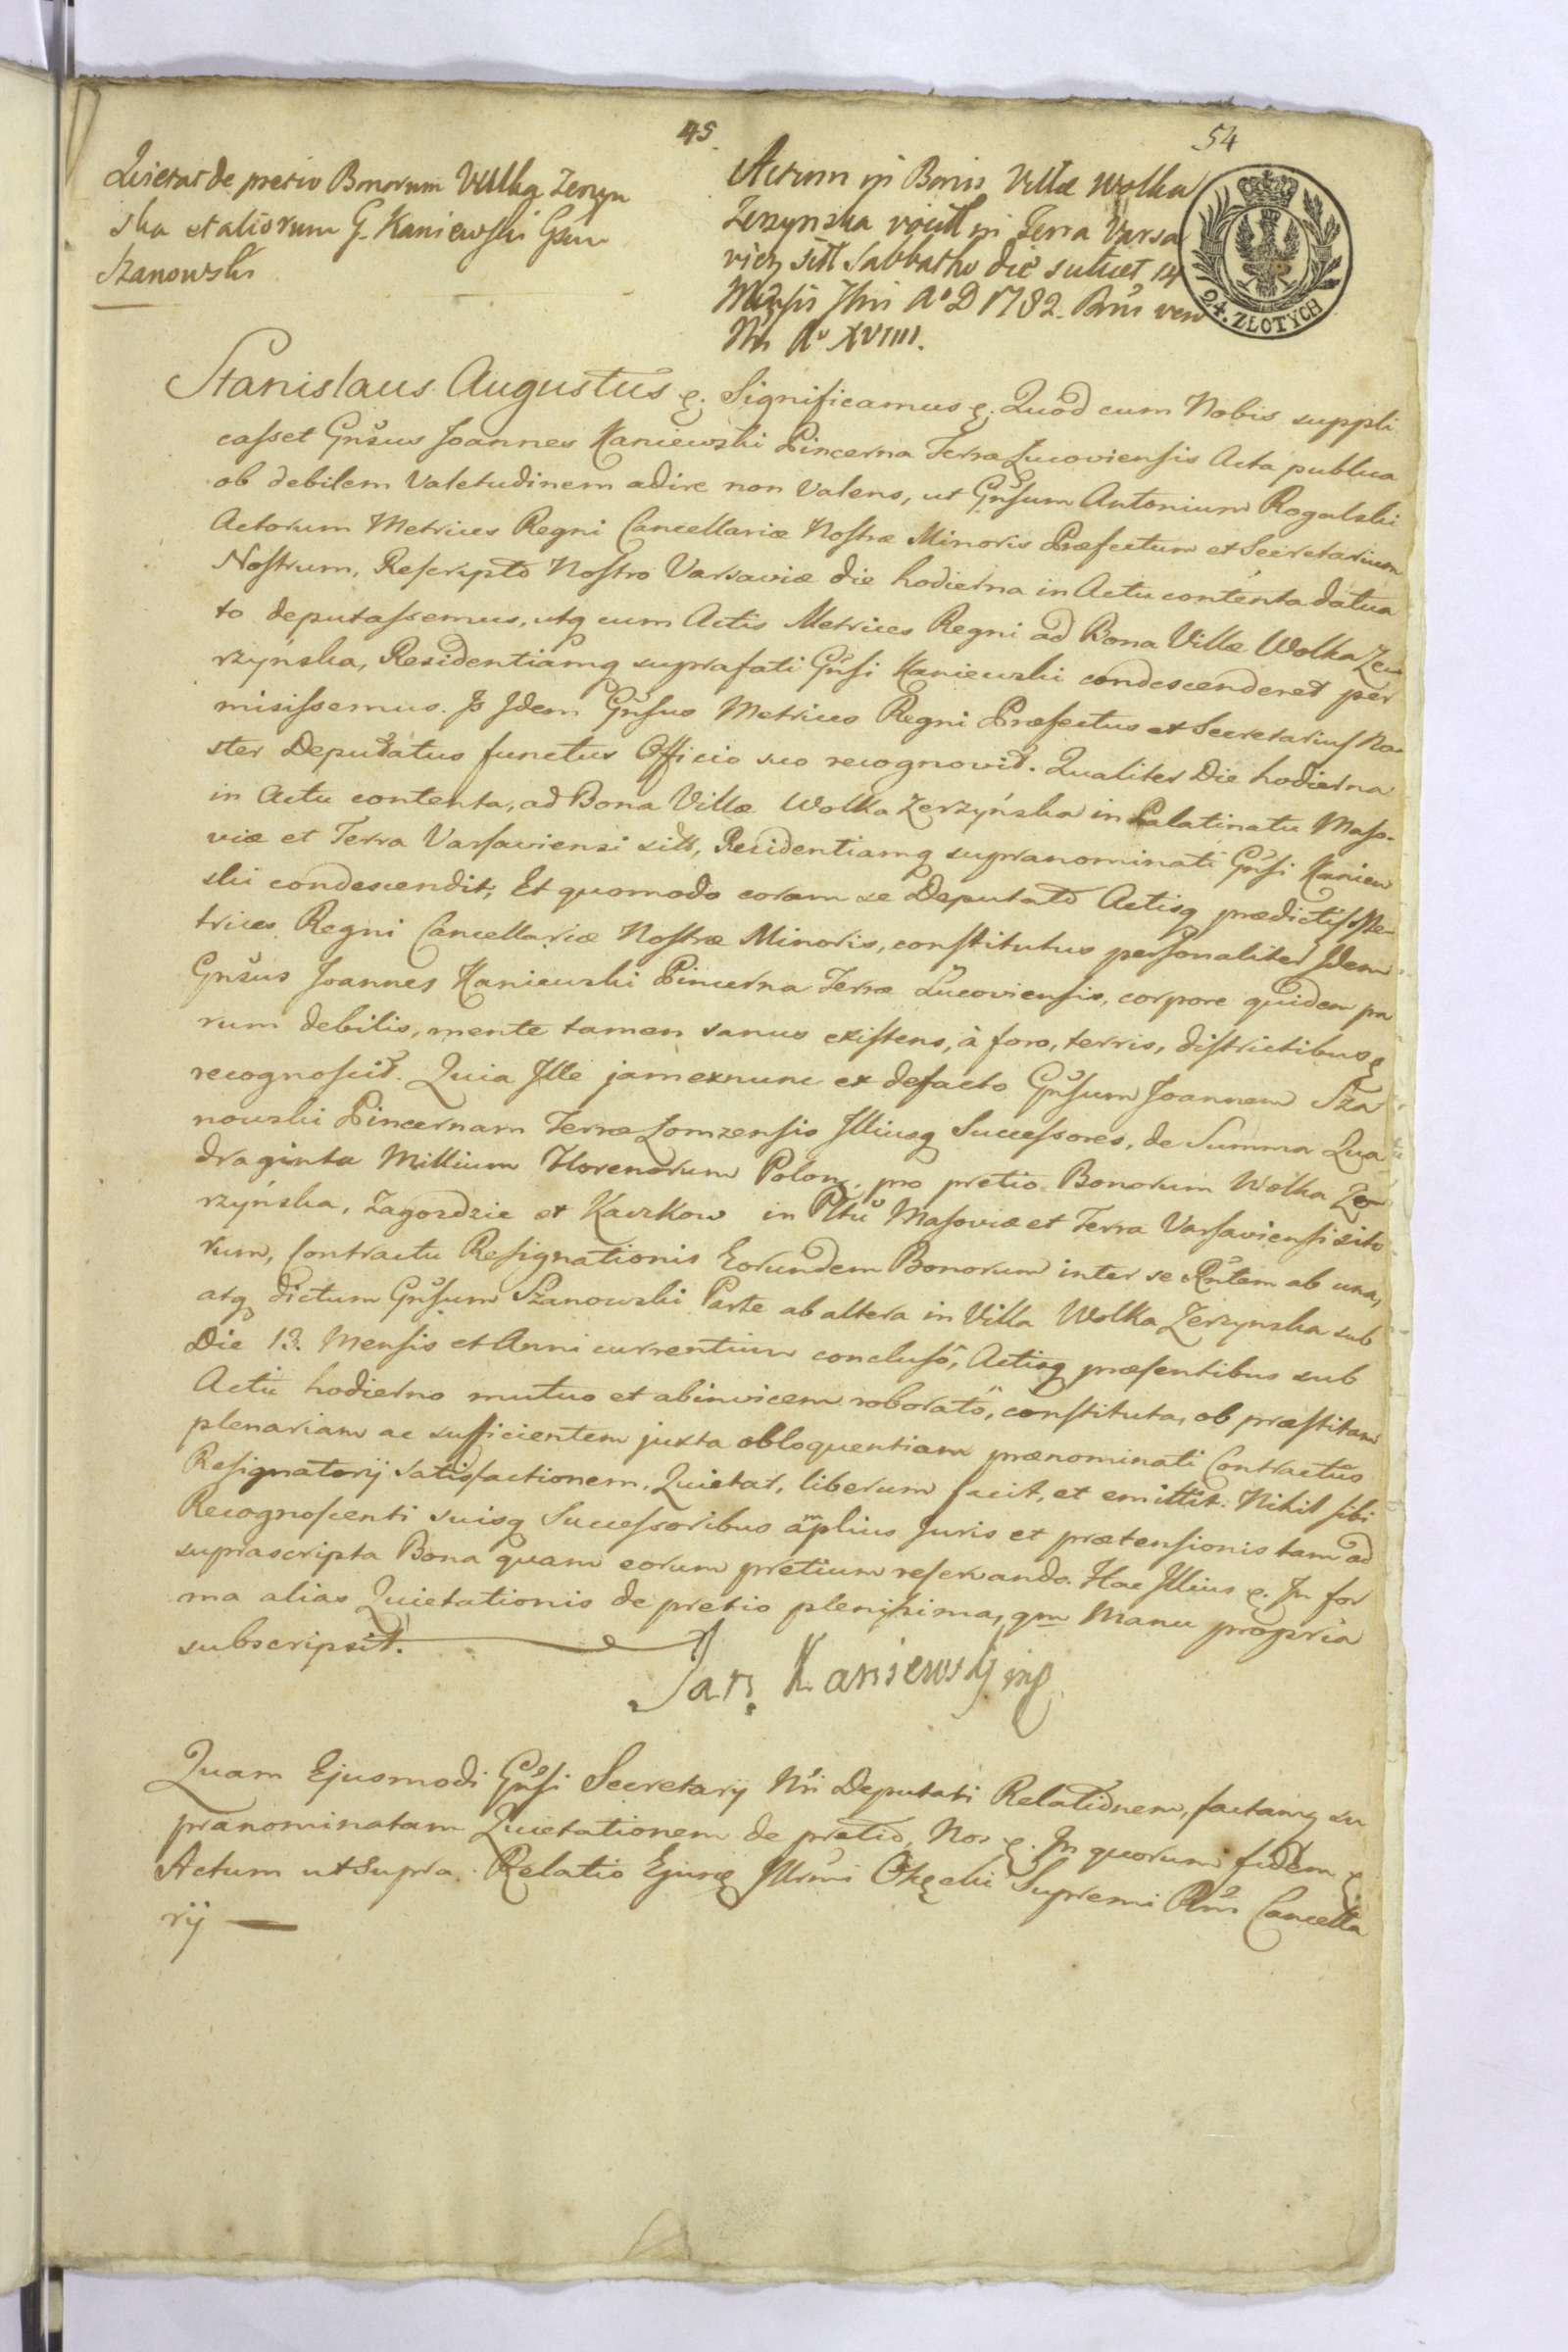 45.
54
Quietat de pretio Bonorum Wulka Zerzyn
ska et aliorum G. Kaniewski Gsu
Szanowski
Actum in Bonis Villæ Wolka
Zerzynska in Terra Varsa
vien sitt Sabbatho die 14
Mensis A° D 1782.
Nri A° XVIIII.
24. ZŁOTYCH
Stanislaus Augustus &. Significamus &. Quod cum Nobis suppli
casset Gnsus Joannes Kaniewski Pincerna Terræ Lucoviensis Acta publica
ob debilem Valetudinem adire non valens, ut Gnsum Antonium Rogalski
Actorum Metrices Regni Cancellariæ Nostræ Minoris Præfectum et Secretarium
Nostrum, Rescripto Nostro Varsaviæ die hodierna in Actu contenta datua
to deputassemus, utq cum Actis Metrices Regni ad Bona Villæ Wolka Ze
rzyńska, Residentiamq suprafati Gnsi Kaniewski condescenderet per
misissemus. Is Idem Gnsus Metrices Regni Præfectus et Secretarius No
ster Deputatus functus Officio suo recognovit. Qualiter Die hodierna
in Actu contenta, ad Bona Villæ Wolka Zerzyńska in Palatinatu Maso-
viæ et Terra Varsaviensi sitt, Residentiamq supranominati Gnsi Kaniew
ski condescendit; Et quomodo coram se Deputato Actisq prædictis Me-
trices Regni Cancellariæ Nostræ Minoris, constitutus personaliter Idem
Gnsus Joannes Kaniewski Pincerna Terræ Lucoviensis, corpore quidem pa
rum debilis, mente tamen sanus existens, à foro, terris, districtibus &
recognoscit. Quia Ille jam exnunc et defacto Gnsum Joannem Sza
nowski Pincernam Terræ Lomzensis Illiusq Successores, de Summa Qua
draginta Millium Florenorum Polon. pro pretio Bonorum Wolka Ze
rzyńska, Zagozdzie et Kaczkow in Pltu Masoviæ et Terra Varsaviensi sito
rum, Contractu Resignationis Eorundem Bonorum inter se Rntem ab una,
atq dictum Gnsum Szanowski Parte ab altera in Villa Wolka Zerzynska sub
Die 13. Mensis et Anni currentium concluso, Actisq præsentibus sub
Actu hodierno mutuo et abinvicem roborato, constituta, ob præstitam
plenariam ac sufficientem juxta obloquentiam prænominati Contractus
Resignatorij satisfactionem, Quietat, liberum facit, et emittit. Nihil sibi
Recognoscenti suisq Successoribus amplius Juris et prætensionis tam ad
suprascripta Bona quam eorum pretium reservando. Hac Illius &. In for
ma alias Quietationis de pretio plenissima, qm Manu propria
subscripsit.
Jan. Kaniewski mp
Quam Ejusmodi Gnsi Secretarij Nri Deputati Relationem, factamq su
pranominatam Quietationem de pretio, Nos &. In quorum fidem &.
Actum ut Supra. Relatio Ejusq Illrmi Okęcki Supremi Rni Cancella
rij